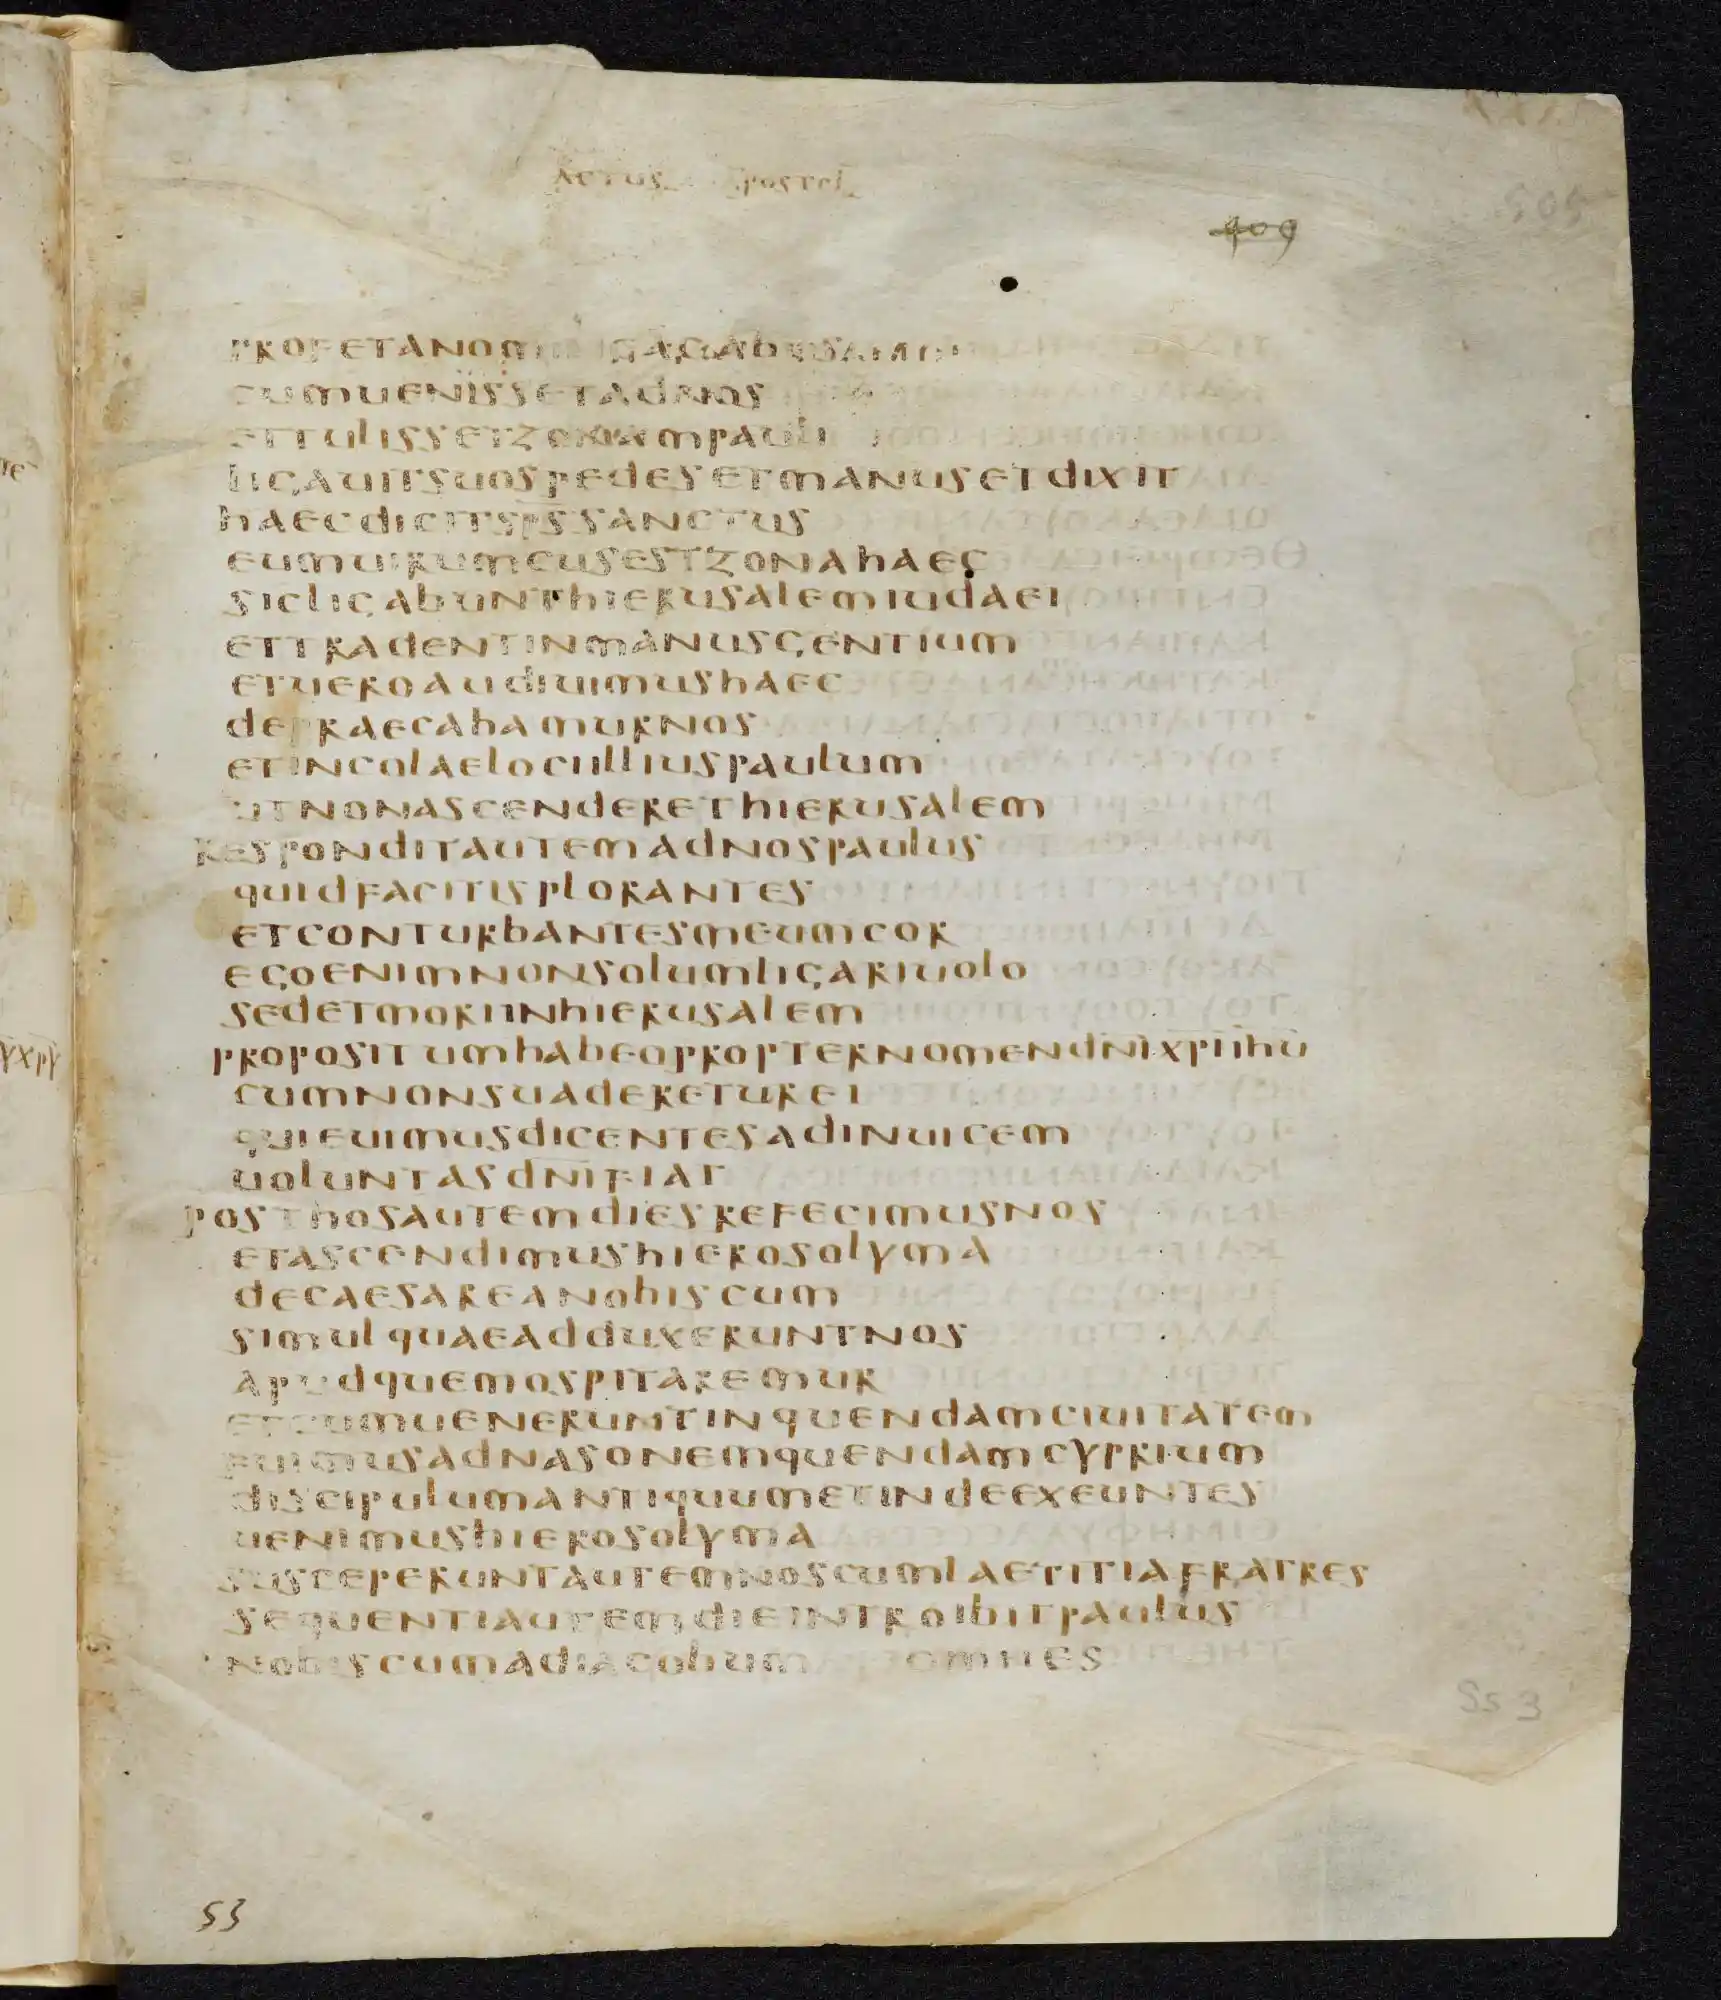 ACTUS APOSTOL
409
505
PROFETANOMINEAGABUS
CUMUENISSETADNOS
ETTULISSETZONAMPAULI
LIGAUITSUOSPEDESETMANUSETDIXIT
HAECDICITSPSSANCTUS
EUMUIRUMCUSESTZONAHAEC
SICLIGABUNTHIERUSALEMIUDAEI
ETTRADENTINMANUSGENTIUM
ETUEROAUDIUIMUSHAEC
DEPRAECABAMURNOS
ETINCOLAELOCIILLIUSPAULUM
UTNONASCENDERETHIERUSALEM
RESPONDITAUTEMADNOSPAULUS
QUIDFACITISPLORANTES
ETCONTURBANTESMEUMCOR
EGOENIMNONSOLUMLIGARIUOLO
SEDETMORIINHIERUSALEM
PROPOSITUMHABEOPROPTERNOMENDNIXPIIHU
CUMNONSUADERETUREI
QUIEUIMUSDICENTESADINUICEM
UOLUNTASDNIFIAT
POSTHOSAUTEMDIESREFECIMUSNOS
ETASCENDIMUSHIEROSOLYMA
DECAESAREANOBISCUM
SIMULQUAEADDUXERUNTNOS
APUDQUEMOSPITAREMUR
ETCUMUENERUNTINQUENDAMCIUITATEM
FUIMUSADNASONEMQUENDAMCYPRIUM
DISCIPULUMANTIQUUMETINDEEXEUNTES
UENIMUSHIEROSOLYMA
SUSCEPERUNTAUTEMNOSCUMLAETITIAFRATRES
SEQUENTIAUTEMDIEINTROIBITPAULUS
NOBISCUMADIACOBUM OMNES
Ss 3
53